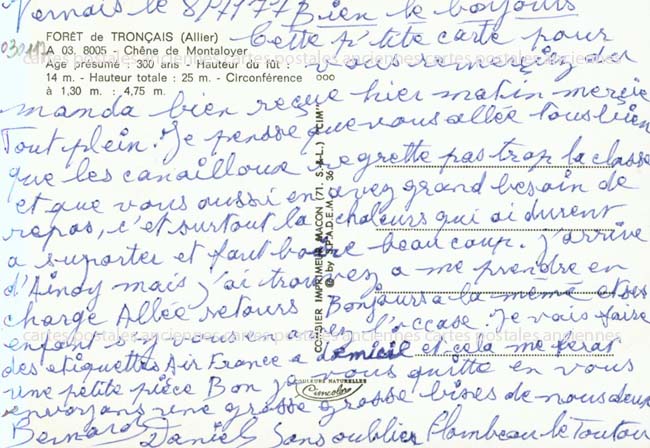 Vernais le 8/7/77 Bien le bonjours
FORÊT de TRONÇAIS (Allier)
A 03. 8005 - Chêne de Montaloyer
Age présumé : 300 ans - Hauteur du fût :
14 m. - Hauteur totale : 25 m. - Circonférence
à 1,30 m. : 4,75 m.
Cette p'tite carte pour
manda bien reçue hier matin mercie
Tout plein. Je pense que vous allée tous bien
que les canailloux regrette pas trop la classe
et que vous aussi en avez grand besoin de
repos, c'et surtout la chaleurs qui ai durent
a suporter et faut boire beaucoup. J'arrive
d'Ainay mais j'ai trouvez a me prendre en
charge Allée retours Bonjours a la mémé et ses
enfants si vous en avez l'occase. Je vais faire
des etiquettes Air France a domicil et cela me feras
une petite pièce Bon je vous quitte en vous
envoyans une grosse grosse bises de nous deux
Bernard Daniel Sans oublier Plombeau le Toutou
COMBIER IMPRIMEUR MACON (71. S.-&-L.) "CIM"
© by S.P.A.D.E.M.
COULEURS NATURELLES
Cimcolor
cartes postales anciennes cartes postales anciennes cartes postales anciennes